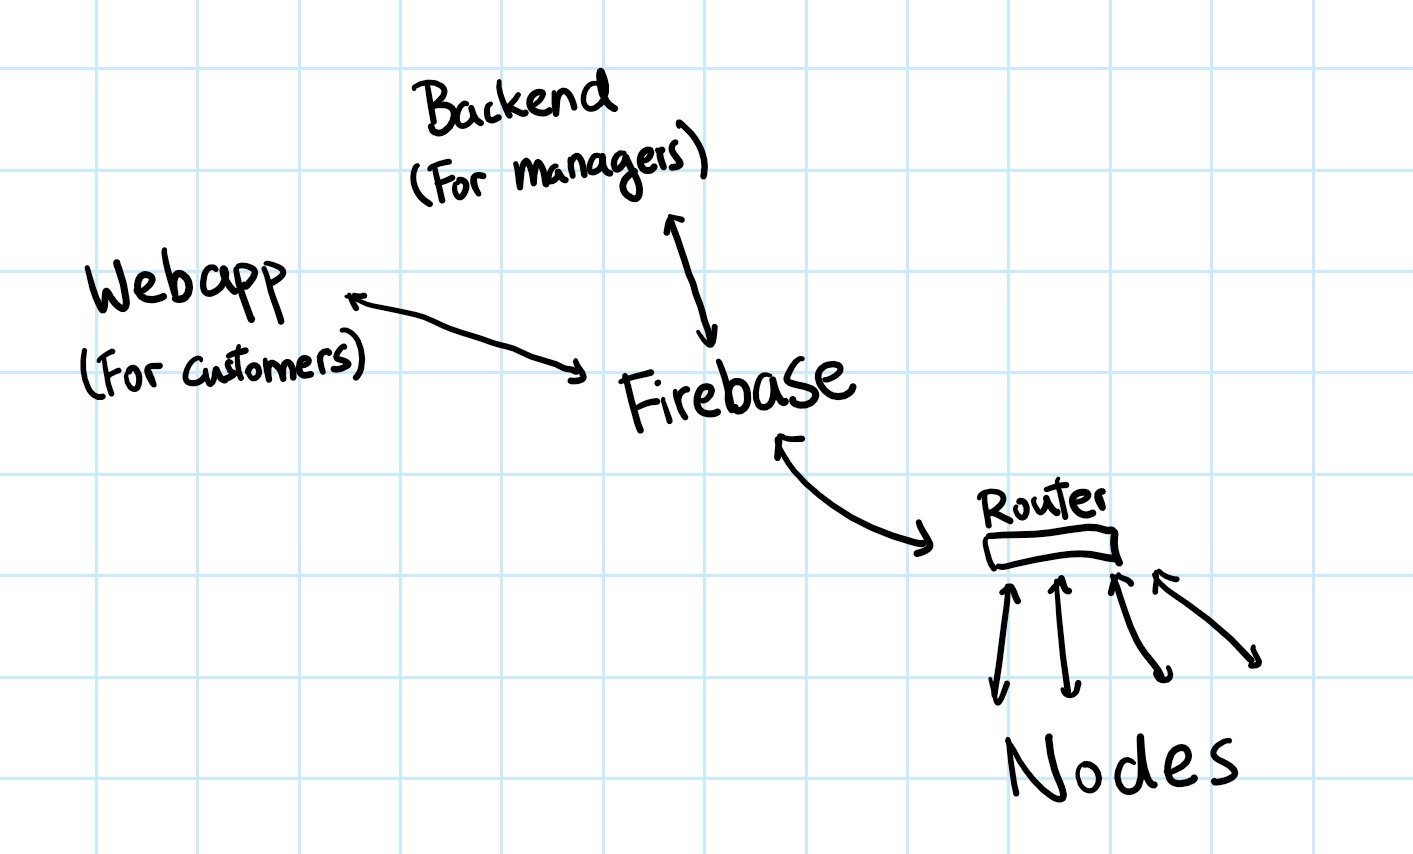 Backend
(For managers)
Webapp
(For customers)
Firebase
Router
Nodes